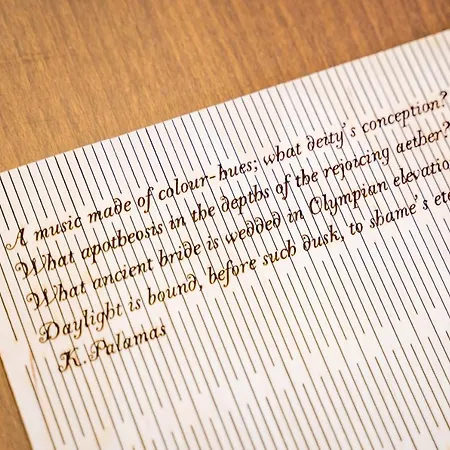 A music made of colour-hues; what deity's conception?
What apotheosis in the depths of the rejoicing aether?
What ancient bride is wedded in Olympian
Daylight is bound, before such dusk, to shame's
K.Palamas